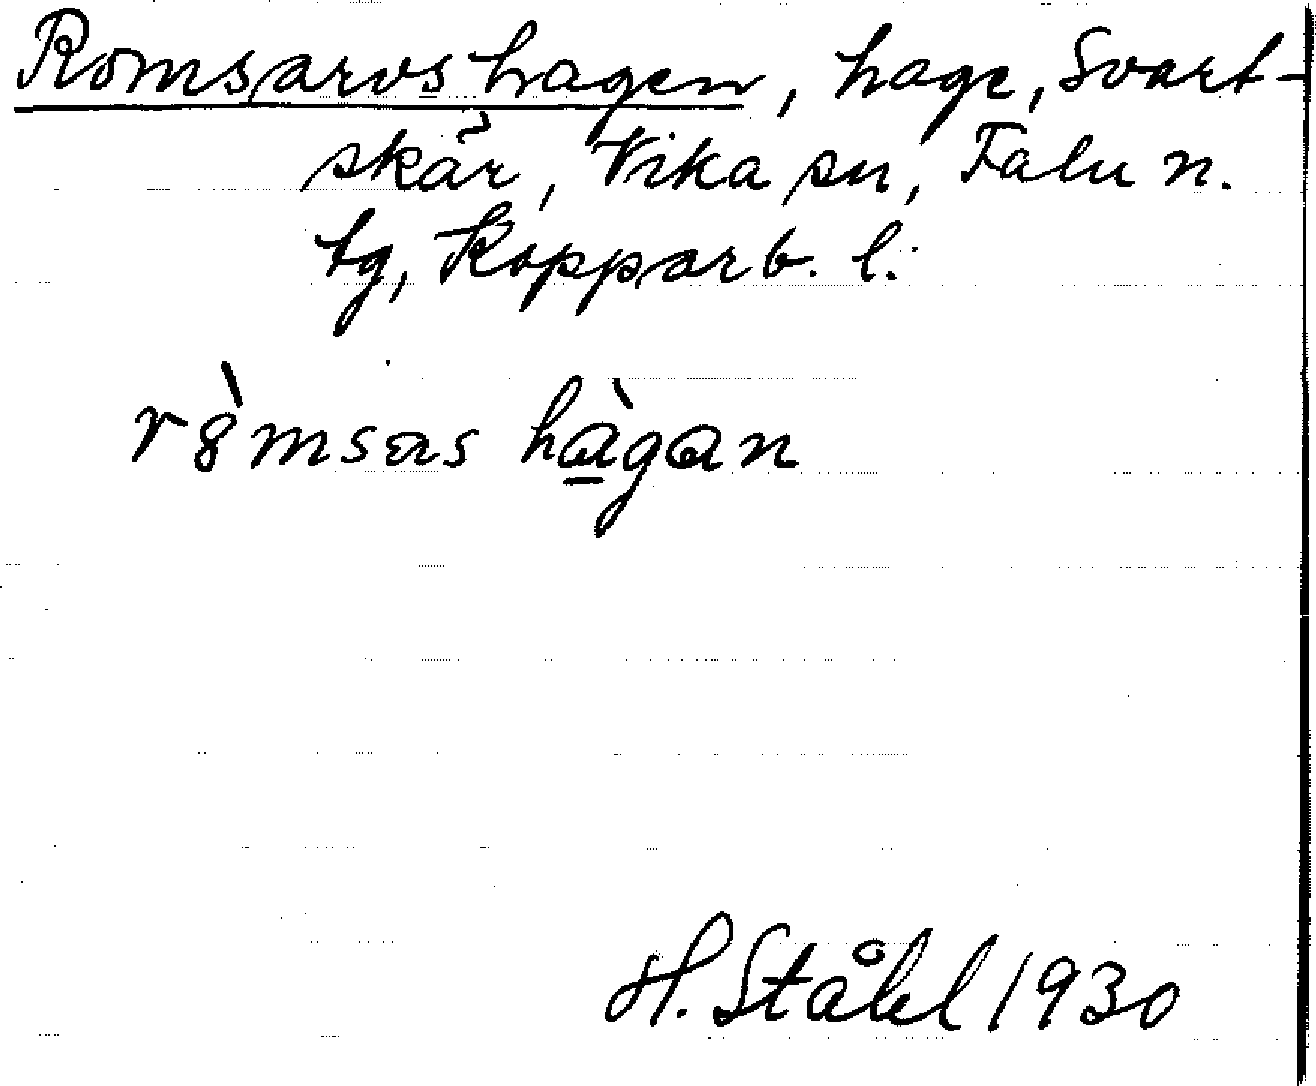 Romsarvshagen, hage, Svart-
skär, Vika sn, Falu n.
tg, Kopparb. l.
r8̀msas hàgan
H. Ståhl 1930